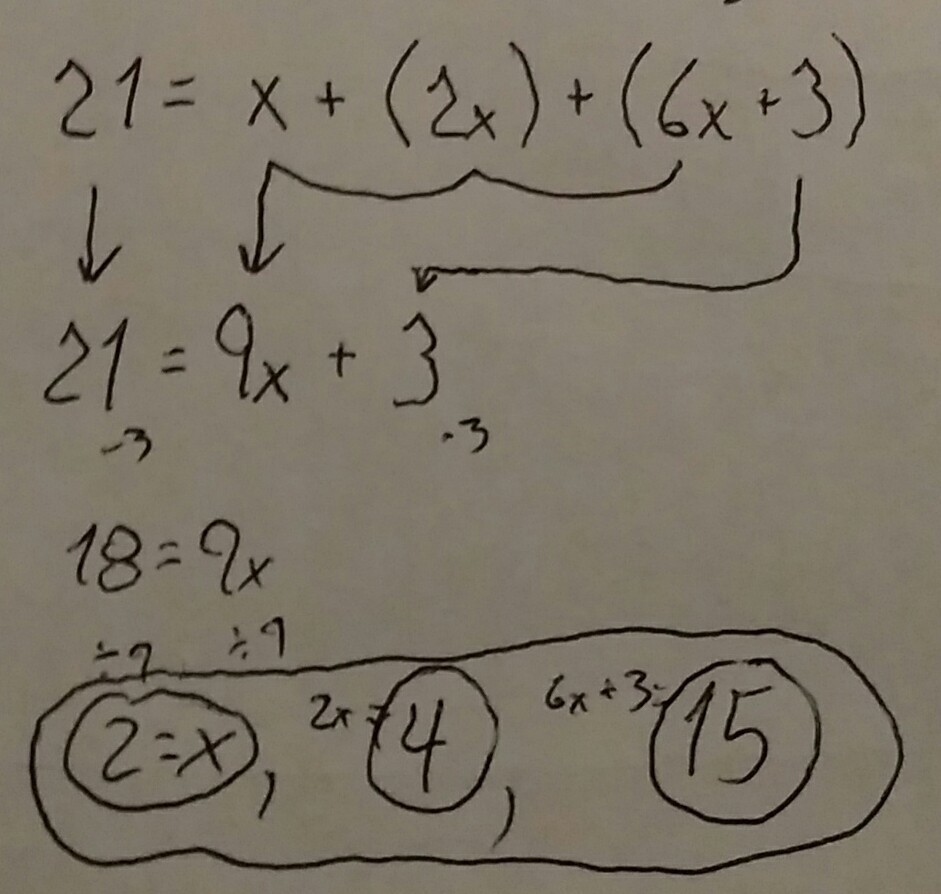 21 = x + (2x) + (6x + 3)
21 = 9x + 3
-3 -3
18 = 9x
÷9 ÷9
2 = x, 2x = 4, 6x + 3 = 15